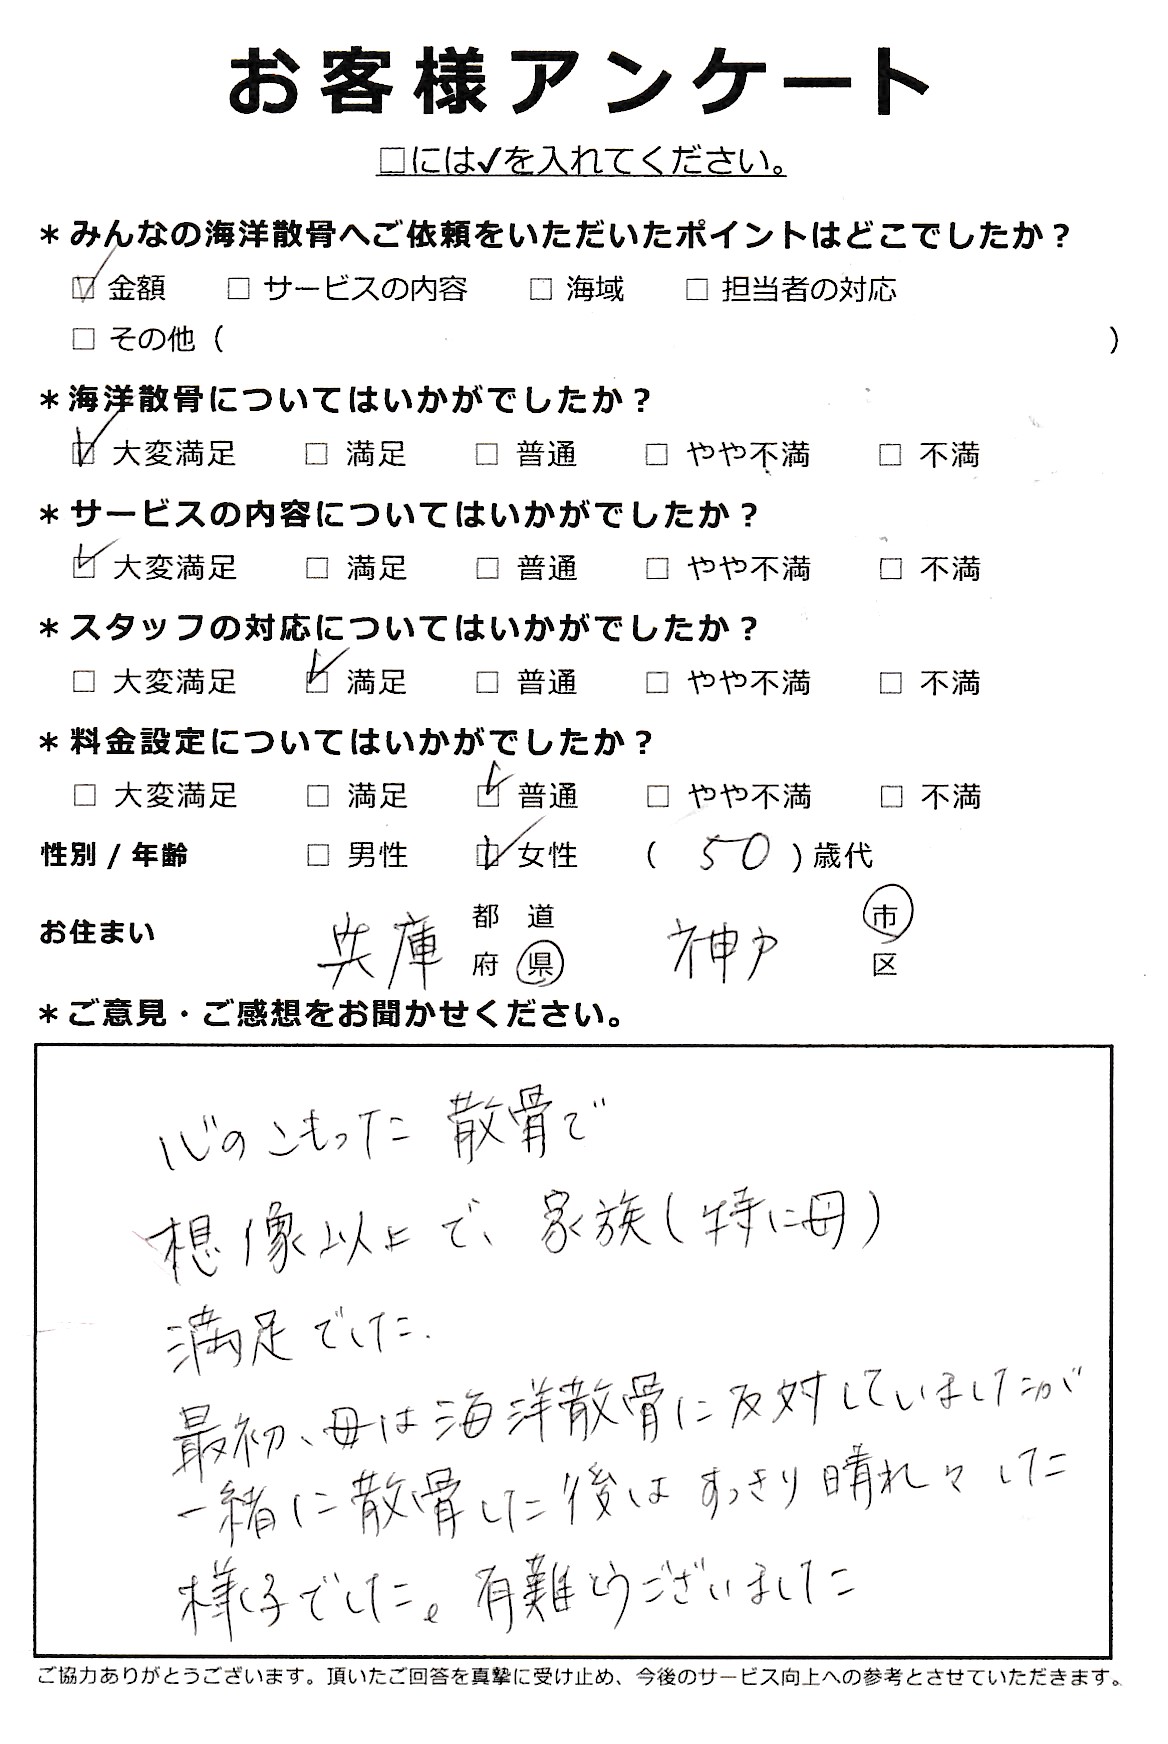 お客様アンケート
□には✓を入れてください。
＊みんなの海洋散骨へご依頼をいただいたポイントはどこでしたか？
☑ 金額 □ サービスの内容 □ 海域 □ 担当者の対応
□ その他（ ）
＊海洋散骨についてはいかがでしたか？
☑ 大変満足 □ 満足 □ 普通 □ やや不満 □ 不満
＊サービスの内容についてはいかがでしたか？
☑ 大変満足 □ 満足 □ 普通 □ やや不満 □ 不満
＊スタッフの対応についてはいかがでしたか？
□ 大変満足 ☑ 満足 □ 普通 □ やや不満 □ 不満
＊料金設定についてはいかがでしたか？
□ 大変満足 □ 満足 ☑ 普通 □ やや不満 □ 不満
性別 / 年齢 □ 男性 ☑ 女性 （ 50 ）歳代
お住まい 兵庫 都 道 府 県 神戸 市 区
＊ご意見・ご感想をお聞かせください。
心のこもった散骨で
想像以上で、家族(特に母)
満足でした.
最初、母は海洋散骨に反対していましたが
一緒に散骨した後はすっきり晴れ々した
様子でした。有難とうございました
ご協力ありがとうございます。頂いたご回答を真摯に受け止め、今後のサービス向上への参考とさせていただきます。